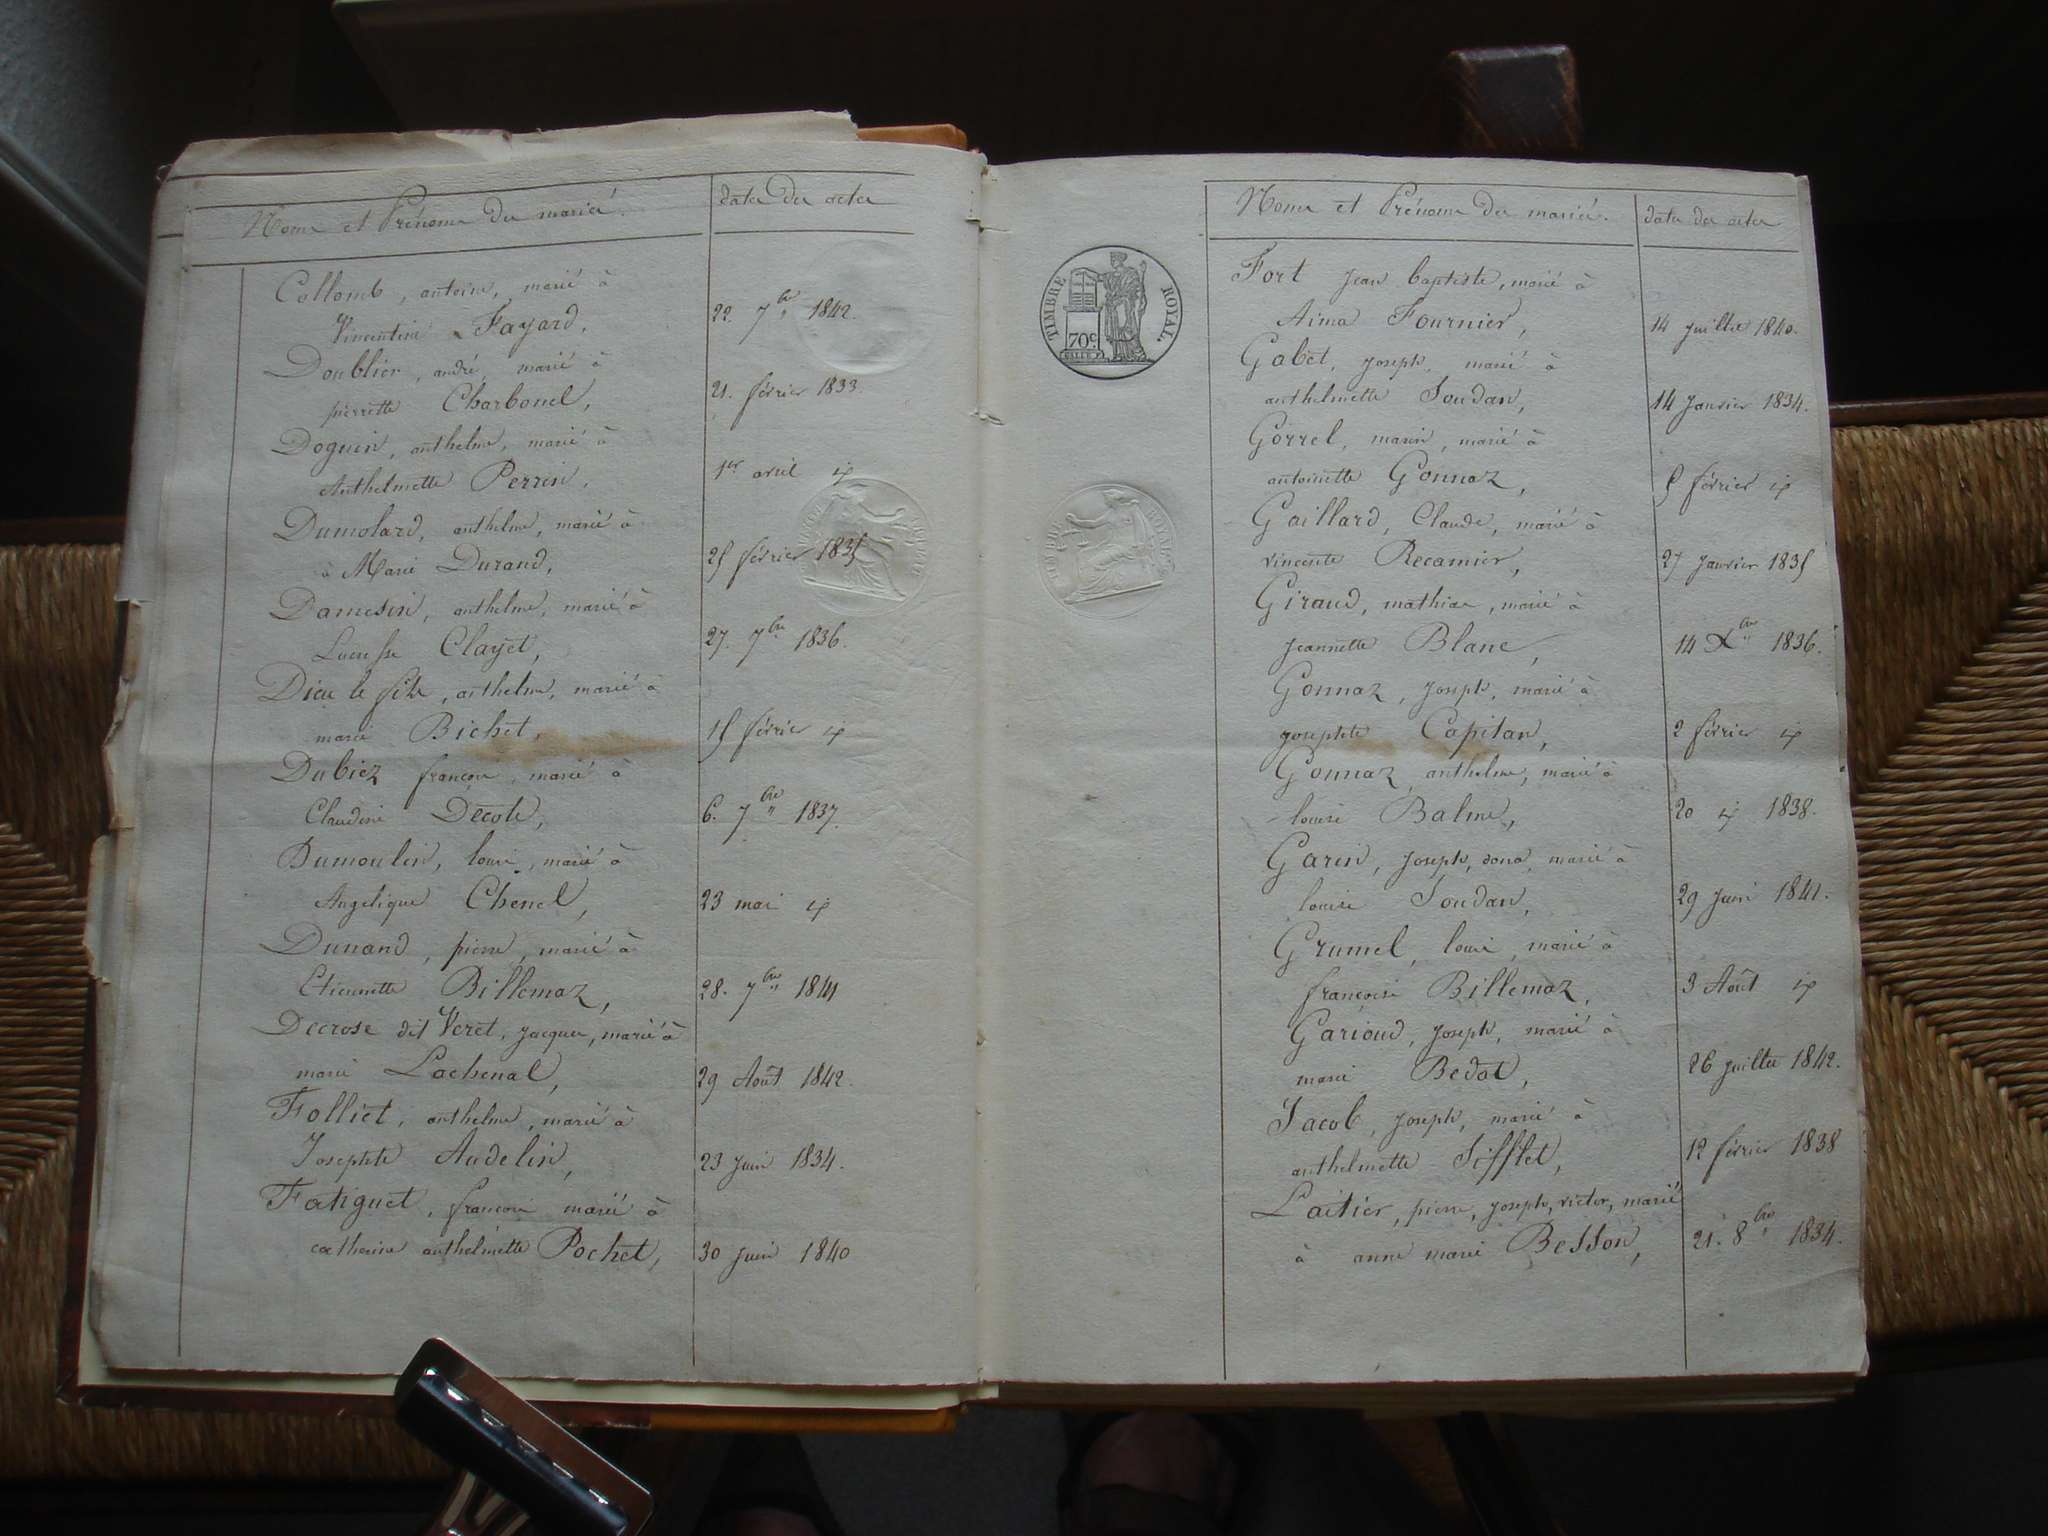 Noms et Prénoms des mariés.
dates des actes
Collomb, antoine, marié à
Vincentine Fayard,
22. 7bre 1842.
Doublier, andré, marié à
pierrette Charbonel,
21. février 1833.
Doguin, anthelme, marié à
Anthelmette Perrin,
1er avril id
Dumolard, anthelme, marié à
à Marie Durand,
25 février 1835
Damesin, anthelme, marié à
Lucresse Clayet,
27. 7bre 1836.
Dieu le fils, anthelme, marié à
marie Bichet,
15 février id
Dubiez françois, marié à
Claudine Decote,
6. 7bre 1837.
Dumoulin, louis, marié à
Angelique Chenel,
23 mai id
Dunand, pierre, marié à
Etiennette Billemaz,
28. 7bre 1841
Decrose dit Veret, jacques, marié à
marie Lachenal,
29 Août 1842.
Folliet, anthelme, marié à
Josephte Andelin,
23 juin 1834.
Fatiguet, françois marié à
catherine anthelmette Pochet,
30 juin 1840
TIMBRE ROYAL.
70c
Noms et Prénoms des mariés.
dates des actes
Fort jean baptiste, marié à
Aima Fournier,
14 juillet 1840.
Gabet, joseph, marié à
anthelmette Soudan,
14 janvier 1834.
Gorrel, marin, marié à
antoinette Gonnaz,
5 février id
Gaillard, Claude, marié à
vincente Recamier,
27 janvier 1835
Giraud, mathias, marié à
jeannette Blanc,
14 Xbre 1836.
Gonnaz, joseph, marié à
josephte Capitan,
2 février id
Gonnaz, anthelme, marié à
louise Balme,
20 id 1838.
Garin, joseph, dona, marié à
louise Soudan,
29 juin 1841.
Grumel, louis, marié à
françoise Billemaz,
3 Août id
Garioud, joseph, marié à
marie Bedat,
26 juillet 1842.
Jacob, joseph, marié à
anthelmette Sifflet,
12 février 1838
Laitier, pierre, joseph, victor, marié
à anne marie Besson,
21. 8bre 1834.